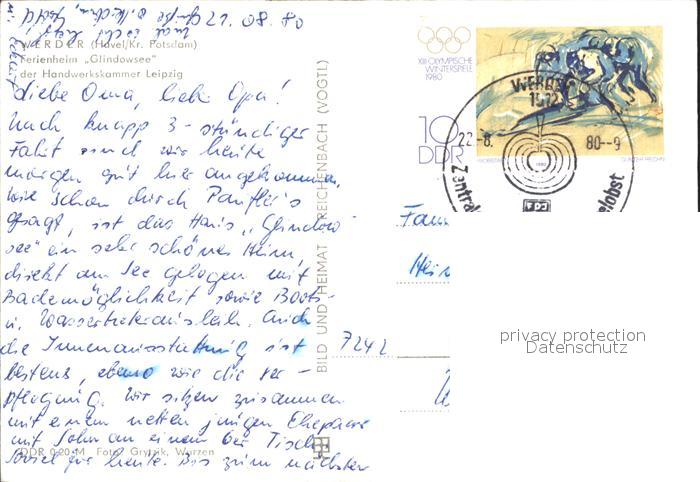 21.08.80
WERDER (Havel/Kr. Potsdam)
Ferienheim „Glindowsee"
der Handwerkskammer Leipzig
Liebe Oma, lieber Opa!
Nach knapp 3-stündiger
Fahrt sind wir heute
morgen gut hier angekommen.
Wie schon durch
gesagt, ist das Haus „Glindow-
see" ein sehr schönes Heim,
direkt am See gelegen mit
Bademöglichkeit sowie Boots-
u. Wassertreterausleih. Auch
die Innenausstattung ist
bestens, ebenso wie die Ver-
pflegung. Wir sitzen zusammen
mit einem netten jungen Ehepaar
mit Sohn an einem 6er Tisch.
Soviel für heute. Bis zum nächsten
DDR 0,20 M Foto: Grytzik, Wurzen
BILD UND HEIMAT REICHENBACH (VOGTL)
XIII. OLYMPISCHE
WINTERSPIELE
1980
10
DDR
WERDER
1512
22.-8. 80--9
Zentral
elobst
Fam
7242
privacy protection
Datenschutz